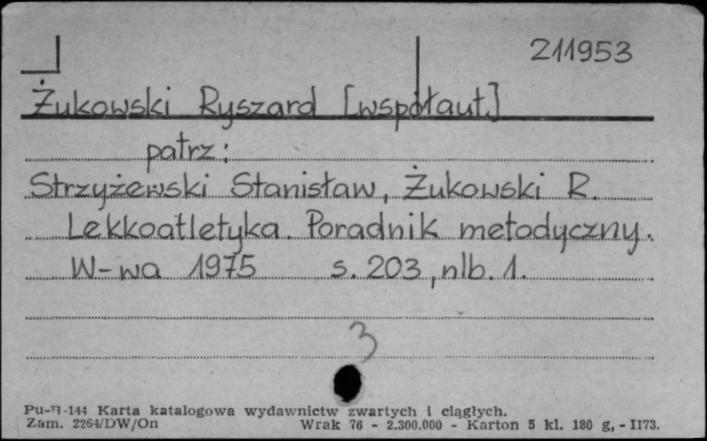 211953
Żukowski Ryszard [współaut.]
patrz:
Strzyżewski Stanisław, Żukowski R.
Lekkoatletyka. Poradnik metodyczny.
W-wa 1975 s. 203, nlb. 1.
3
Pu-B-144 Karta katalogowa wydawnictw zwartych i ciągłych.
Zam. 2264/DW/On Wrak 76 - 2.300.000 - Karton 5 kl. 180 g, - II73.